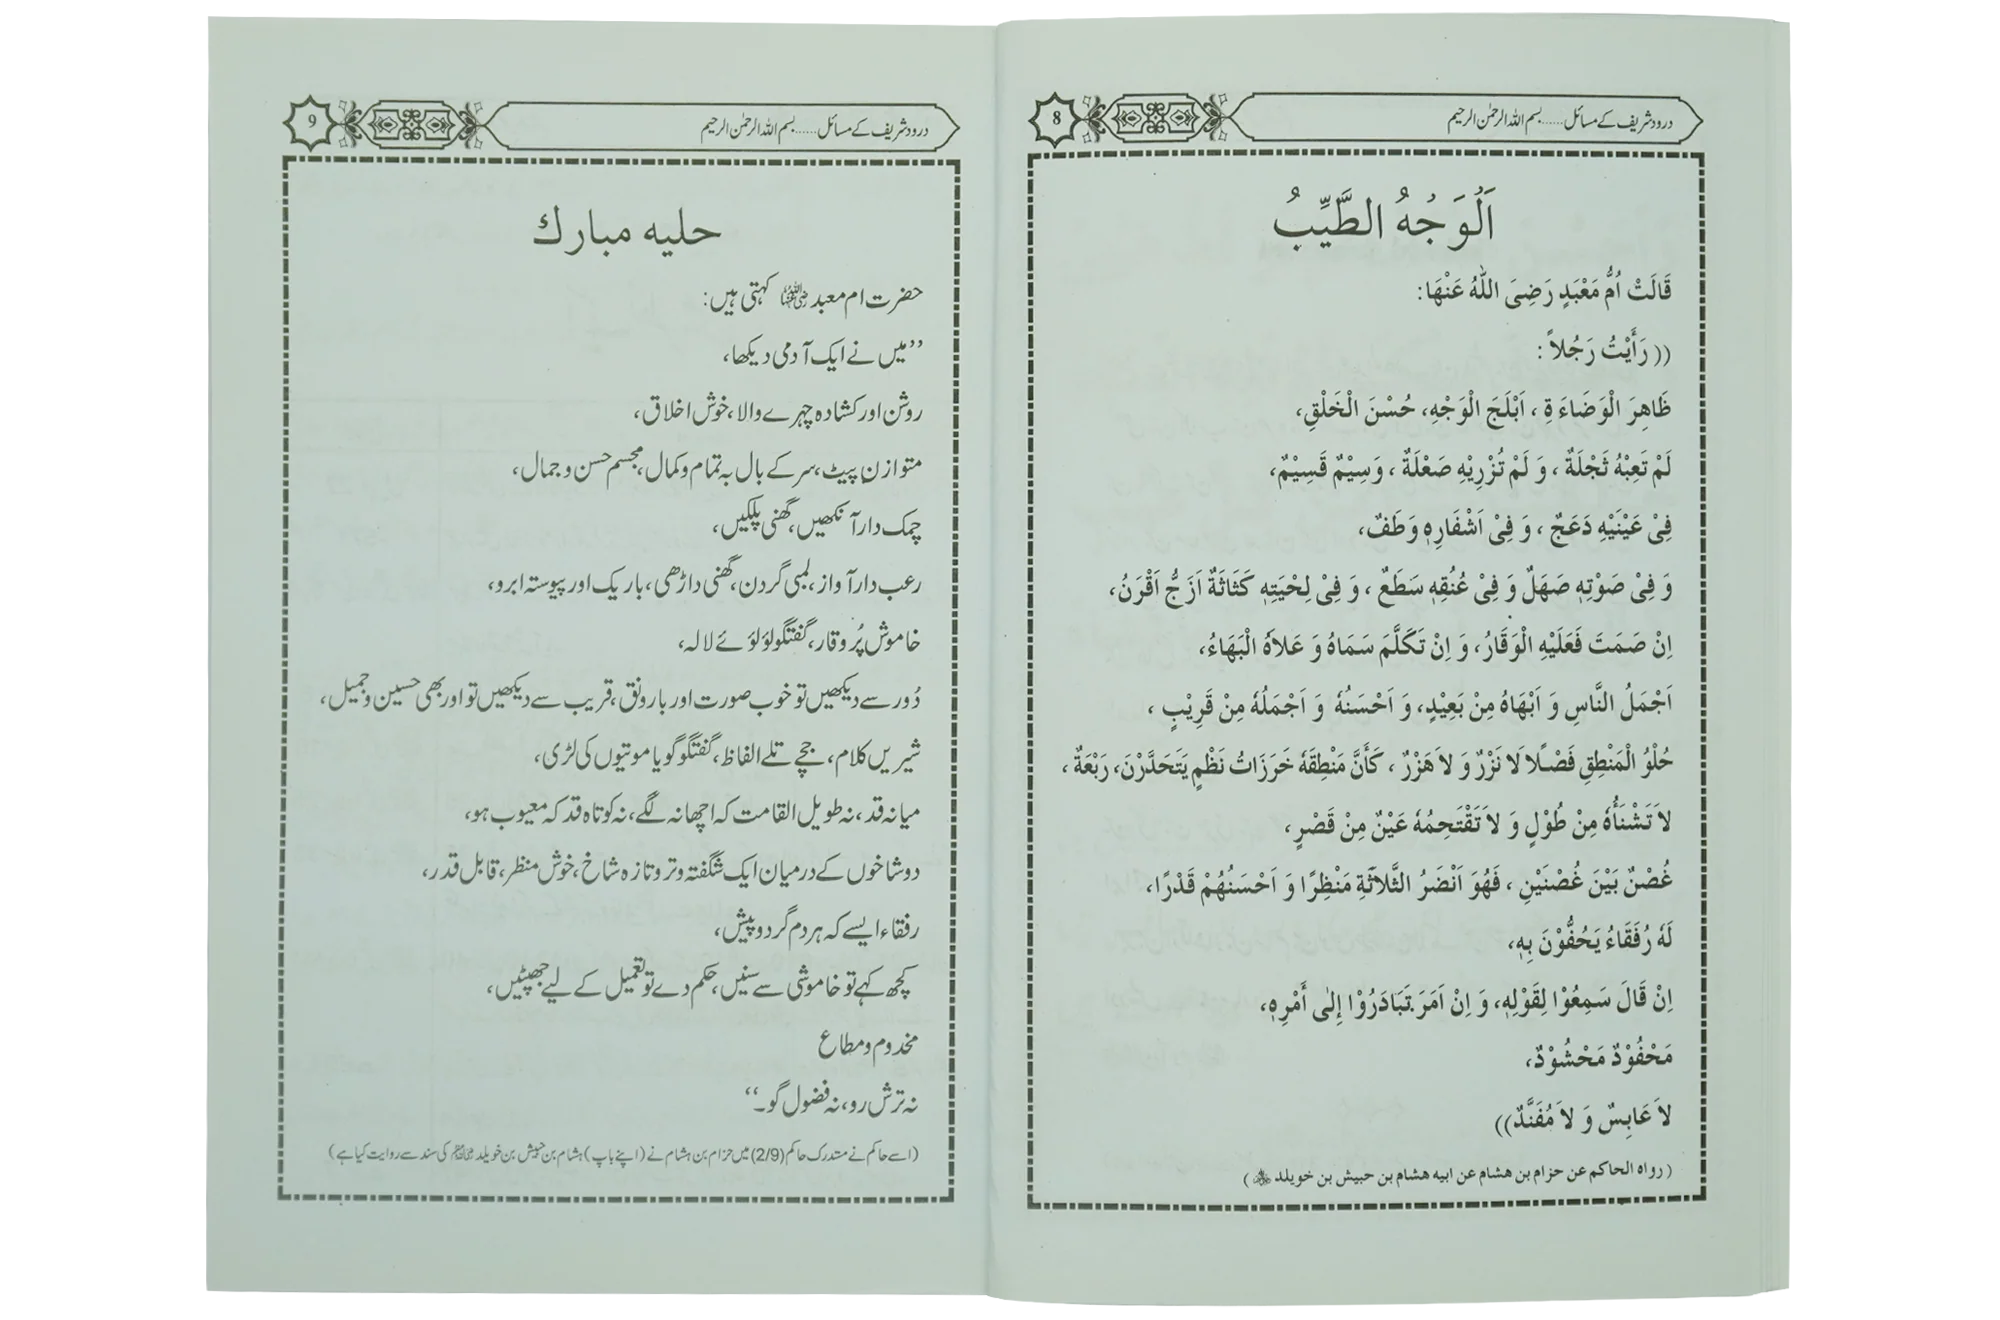 8
درود شریف کے مسائل......بسم اللہ الرحمٰن الرحیم
اَلْوَجْهُ الطَّيِّبُ
قَالَتْ اُمُّ مَعْبَدٍ رَضِیَ اللّٰهُ عَنْهَا:
(( رَأَيْتُ رَجُلاً :
ظَاهِرَ الْوَضَاءَةِ ، اَبْلَجَ الْوَجْهِ، حُسْنَ الْخَلْقِ،
لَمْ تَعِبْهُ ثَجْلَةٌ ، وَ لَمْ تُزْرِيْهِ صَعْلَةٌ ، وَسِيْمٌ قَسِيْمٌ،
فِیْ عَيْنَيْهِ دَعَجٌ ، وَ فِیْ اَشْفَارِهٖ وَطَفٌ،
وَ فِیْ صَوْتِهٖ صَهَلٌ وَ فِیْ عُنُقِهٖ سَطَعٌ ، وَ فِیْ لِحْيَتِهٖ كَثَاثَةٌ اَزَجُّ اَقْرَنُ،
اِنْ صَمَتَ فَعَلَيْهِ الْوَقَارُ، وَ اِنْ تَكَلَّمَ سَمَاهُ وَ عَلاَهُ الْبَهَاءُ،
اَجْمَلُ النَّاسِ وَ اَبْهَاهُ مِنْ بَعِيْدٍ، وَ اَحْسَنُهٗ وَ اَجْمَلُهٗ مِنْ قَرِيْبٍ ،
حُلْوُ الْمَنْطِقِ فَصْلًا لَا نَزْرٌ وَ لاَ هَزْرٌ ، كَأَنَّ مَنْطِقَهٗ خَرَزَاتُ نَظْمٍ يَتَحَدَّرْنَ، رَبْعَةٌ ،
لاَ تَشْنَأُهٗ مِنْ طُوْلٍ وَ لاَ تَقْتَحِمُهٗ عَيْنٌ مِنْ قَصْرٍ،
غُصْنٌ بَيْنَ غُصْنَيْنِ ، فَهُوَ اَنْضَرُ الثَّلاَثَةِ مَنْظِرًا وَ اَحْسَنُهُمْ قَدْرًا،
لَهٗ رُفَقَاءُ يَحُفُّوْنَ بِهٖ،
اِنْ قَالَ سَمِعُوْا لِقَوْلِهٖ، وَ اِنْ اَمَرَ تَبَادَرُوْا اِلٰی أَمْرِهٖ،
مَحْفُوْدٌ مَحْشُوْدٌ،
لاَ عَابِسٌ وَ لاَ مُفَنَّدٌ))
( رواه الحاكم عن حزام بن هشام عن ابيه هشام بن حبيش بن خويلد )
9
درود شریف کے مسائل......بسم اللہ الرحمٰن الرحیم
حلیہ مبارک
حضرت ام معبد رضی اللہ عنہا کہتی ہیں:
’’میں نے ایک آدمی دیکھا،
روشن اور کشادہ چہرے والا، خوش اخلاق،
متوازن پیٹ، سر کے بال بہ تمام و کمال، مجسم حسن و جمال،
چمک دار آنکھیں، گھنی پلکیں،
رعب دار آواز، لمبی گردن، گھنی داڑھی، باریک اور پیوستہ ابرو،
خاموش پُر وقار، گفتگو لؤلؤئے لالہ،
دُور سے دیکھیں تو خوب صورت اور بارونق، قریب سے دیکھیں تو اور بھی حسین و جمیل،
شیریں کلام، جچے تلے الفاظ، گفتگو گویا موتیوں کی لڑی،
میانہ قد، نہ طویل القامت کہ اچھا نہ لگے، نہ کوتاہ قد کہ معیوب ہو،
دو شاخوں کے درمیان ایک شگفتہ و تر و تازہ شاخ، خوش منظر، قابل قدر،
رفقاء ایسے کہ ہر دم گرد و پیش،
کچھ کہے تو خاموشی سے سنیں، حکم دے تو تعمیل کے لیے جھپٹیں،
مخدوم و مطاع
نہ ترش رو، نہ فضول گو۔‘‘
(اسے حاکم نے مستدرک حاکم (2/9) میں حزام بن ہشام نے (اپنے باپ) ہشام بن حبیش بن خویلد کی سند سے روایت کیا ہے)